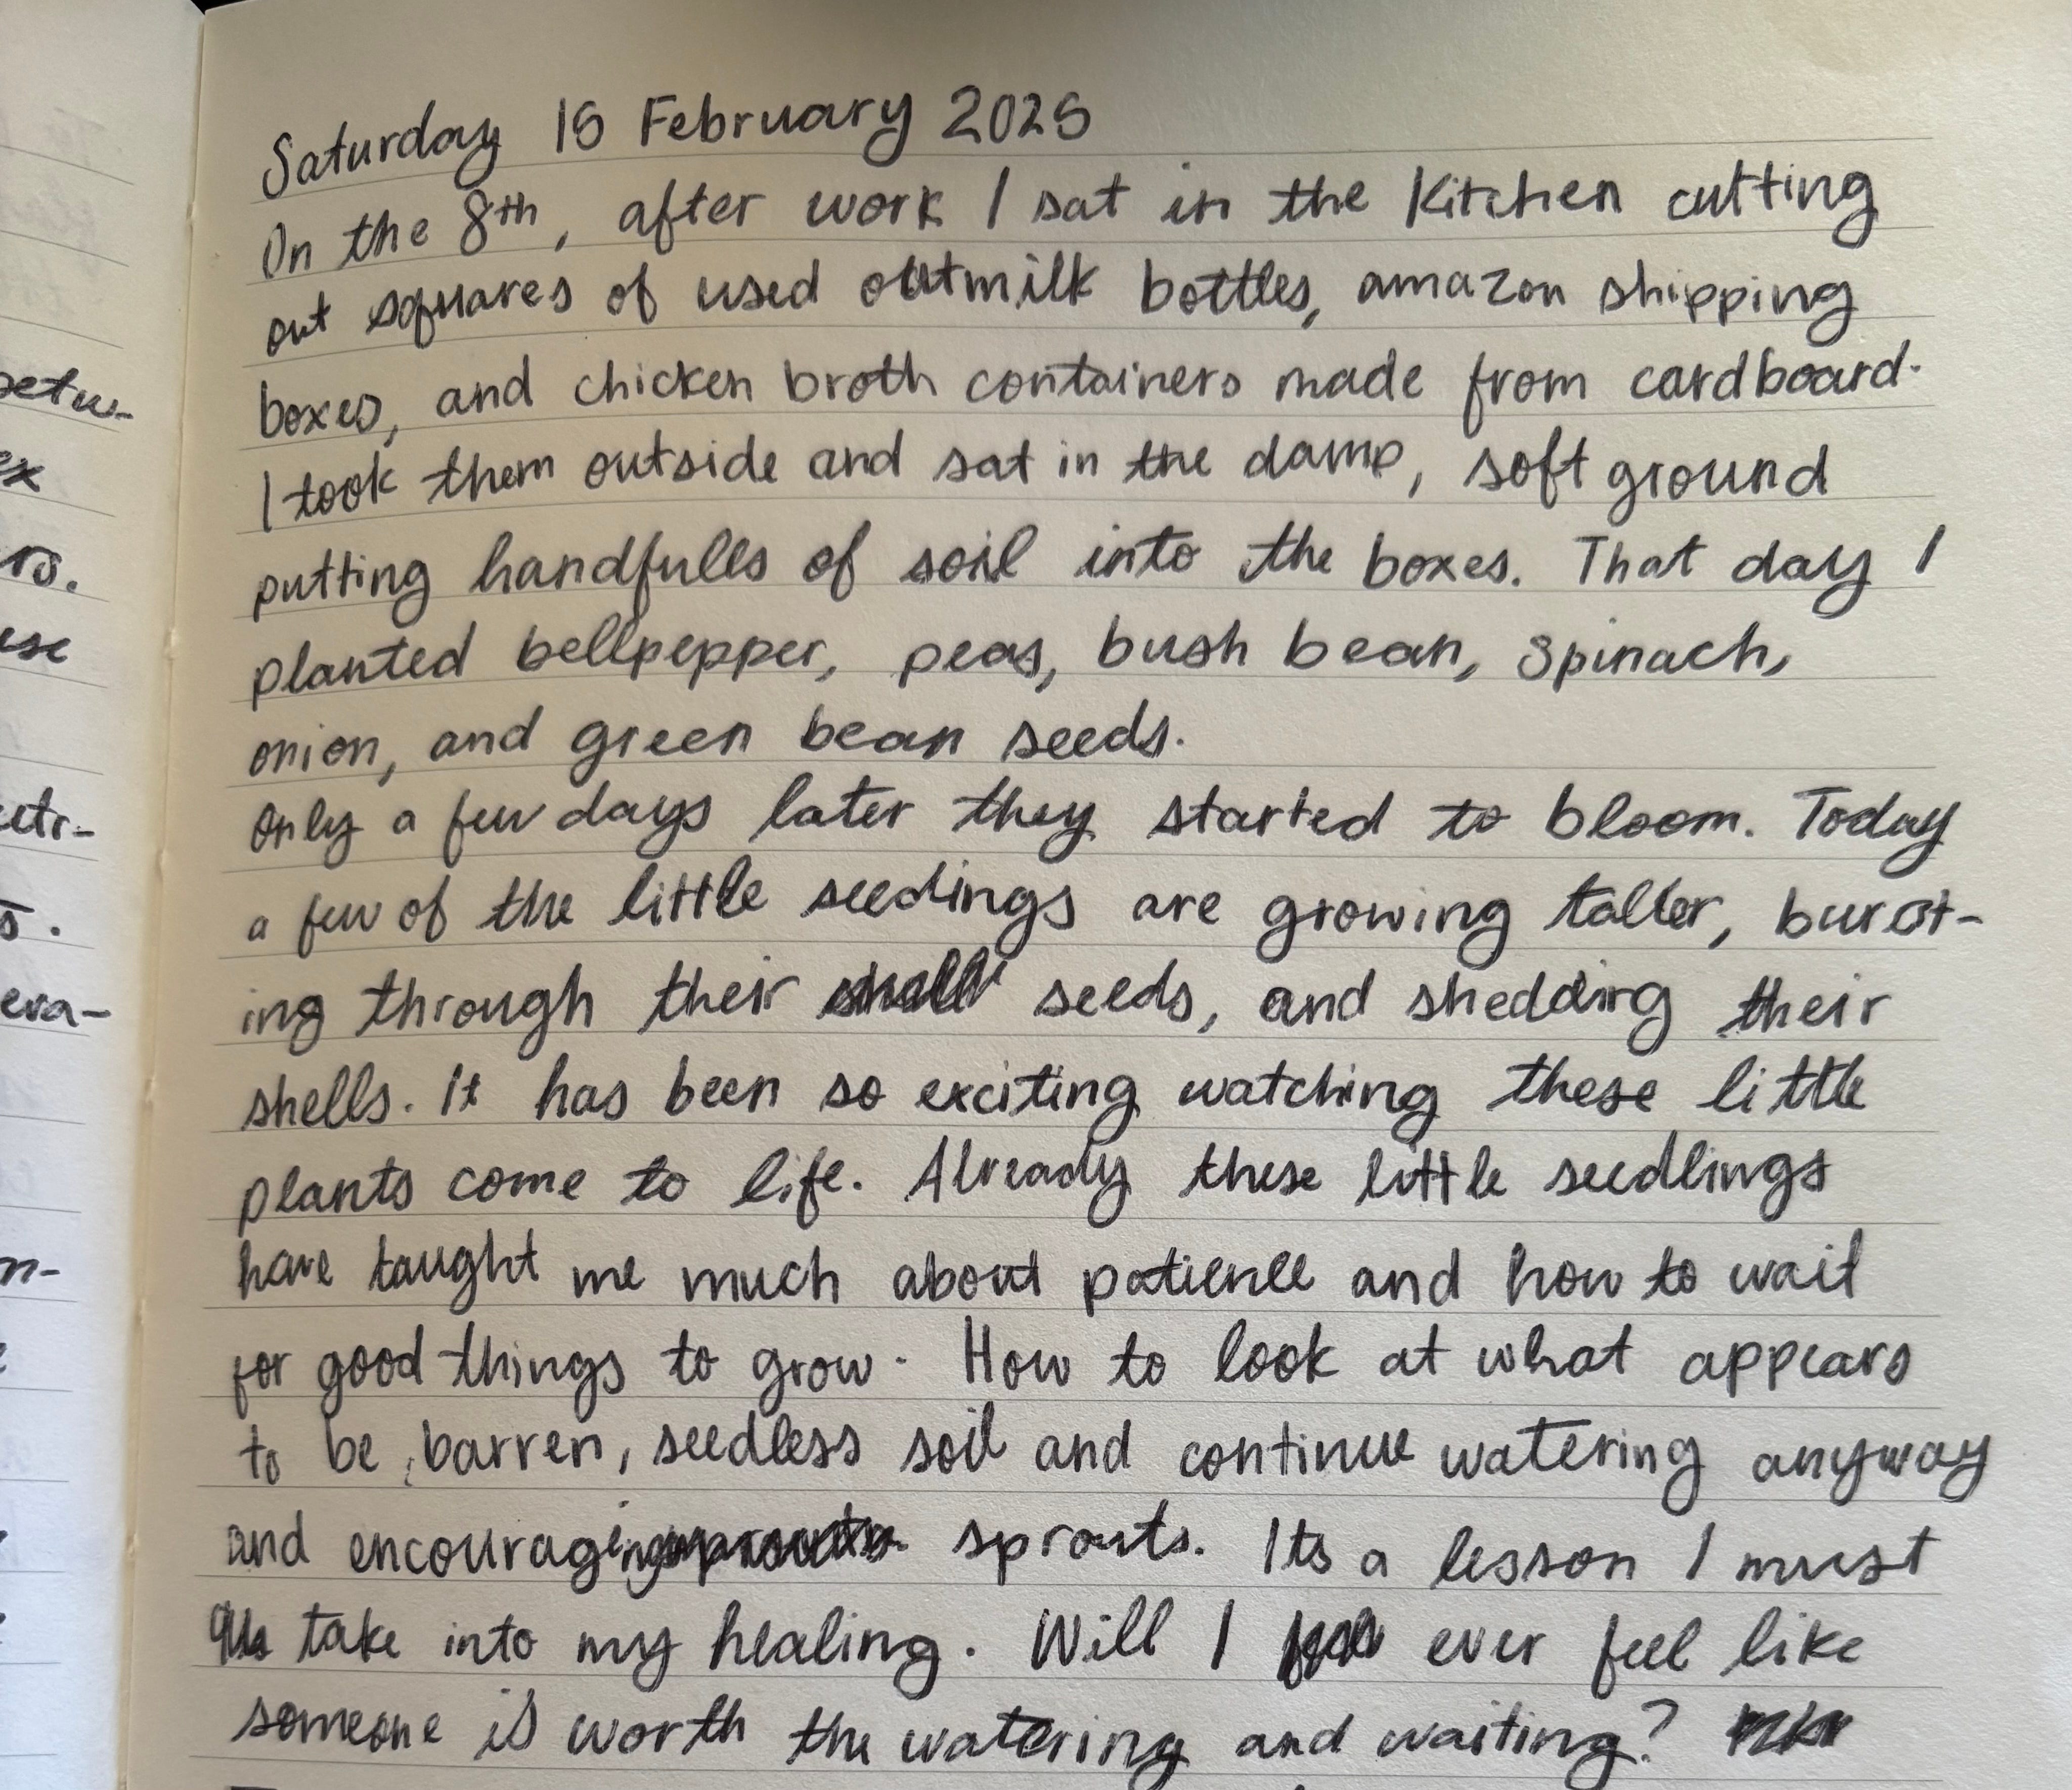 Saturday 15 February 2025
On the 8th, after work I sat in the kitchen cutting
out squares of used oatmilk bottles, amazon shipping
boxes, and chicken broth containers made from cardboard.
I took them outside and sat in the damp, soft ground
putting handfulls of soil into the boxes. That day I
planted bellpepper, peas, bush bean, spinach,
onion, and green bean seeds.
Only a few days later they started to bloom. Today
a few of the little seedings are growing taller, burst-
ing through their seeds, and shedding their
shells. It has been so exciting watching these little
plants come to life. Already these little seedlings
have taught me much about patience and how to wait
for good things to grow. How to look at what appears
to be barren, seedless soil and continue watering anyway
and encouraging sprouts. Its a lesson I must
take into my healing. Will I ever feel like
someone is worth the watering and waiting?
petu-
ex
rs.
use
utr-
s.
era-
n-